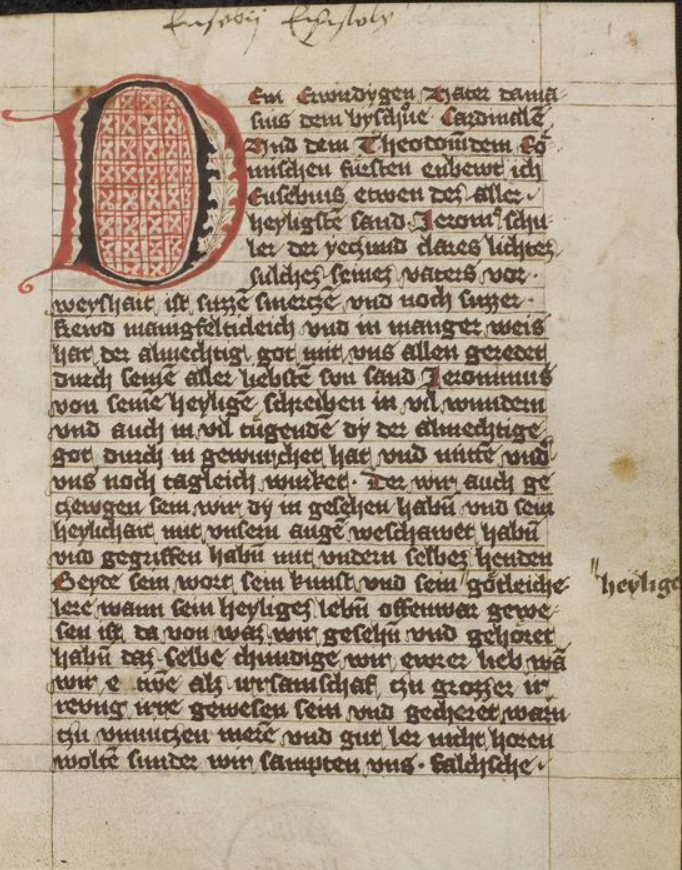 Eusebij Epistola
Dem Erwirdygen Vater dama-
sius dem byschoue Cardinalẽ
Vnd dem Theodom̃dem Rö
mischen fürsten enbewt ich
Eusebius etwen dez aller
heyligstẽ sand Jeromꝰ schu-
ler der yeczund clares lichtez
sulchez seinez vaters vor
weyshait ist suzze smerczẽ vnd noch suzzer
frewd manigfelticleich vnd in manger weis
hat der almechtig got mit vns allen geredet
durch seinẽ aller liebstẽ svn sand Jeronimus
von seinẽ heyligẽ schreiben in vil wundern
vnd auch in vil tugendẽ dy der almechtige
got durch in gewurchet hat vnd mitte vnd
vns noch tagleich wurket. Der wir auch ge
czewgen sein wir dy in gesehen habñ vnd sein
heylichait mit vnsern augẽ weschawet habñ
vnd gegriffen habñ mit vndern selbez henden
Beyde sein wort sein kunst vnd sein götleiche
"heylige
lere wann sein heyligez lebñ offenwar gewe-
sen ist da von waz wir gesehñ vnd gehoret
habñ daz selbe chundige wir ewrer lieb wã
wir e alz vrsamschaf czu grozzer ir
rvng gewesen sein vnd gecheret warñ
czu vnnuczen merẽ vnd gut ler nicht horen
woltẽ sunder wir sampten vns. falchsche